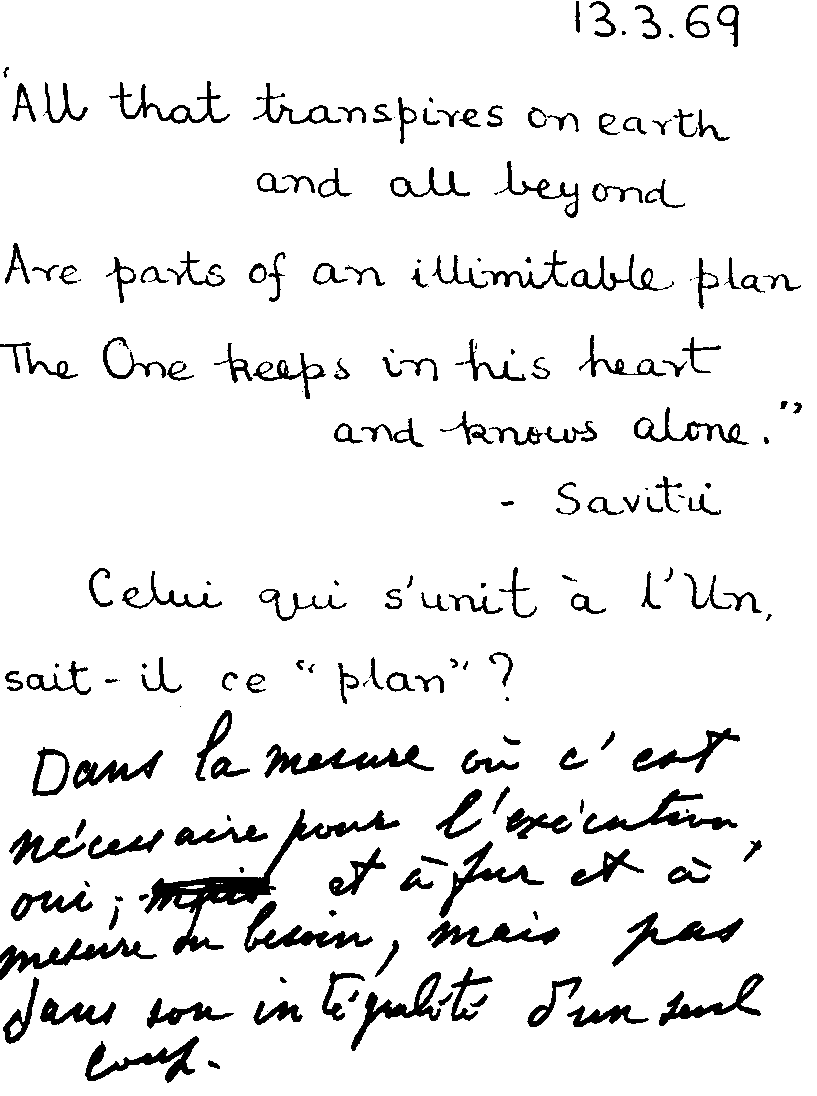 13.3.69
"All that transpires on earth
and all beyond
Are parts of an illimitable plan
The One keeps in his heart
and knows alone."
- Savitri
Celui qui s'unit à l'Un,
sait-il ce "plan"?
Dans la mesure où c'est
nécessaire pour l'exécution,
oui; et à fur et à
mesure du besoin, mais pas
dans son intégralité d'un seul
coup.